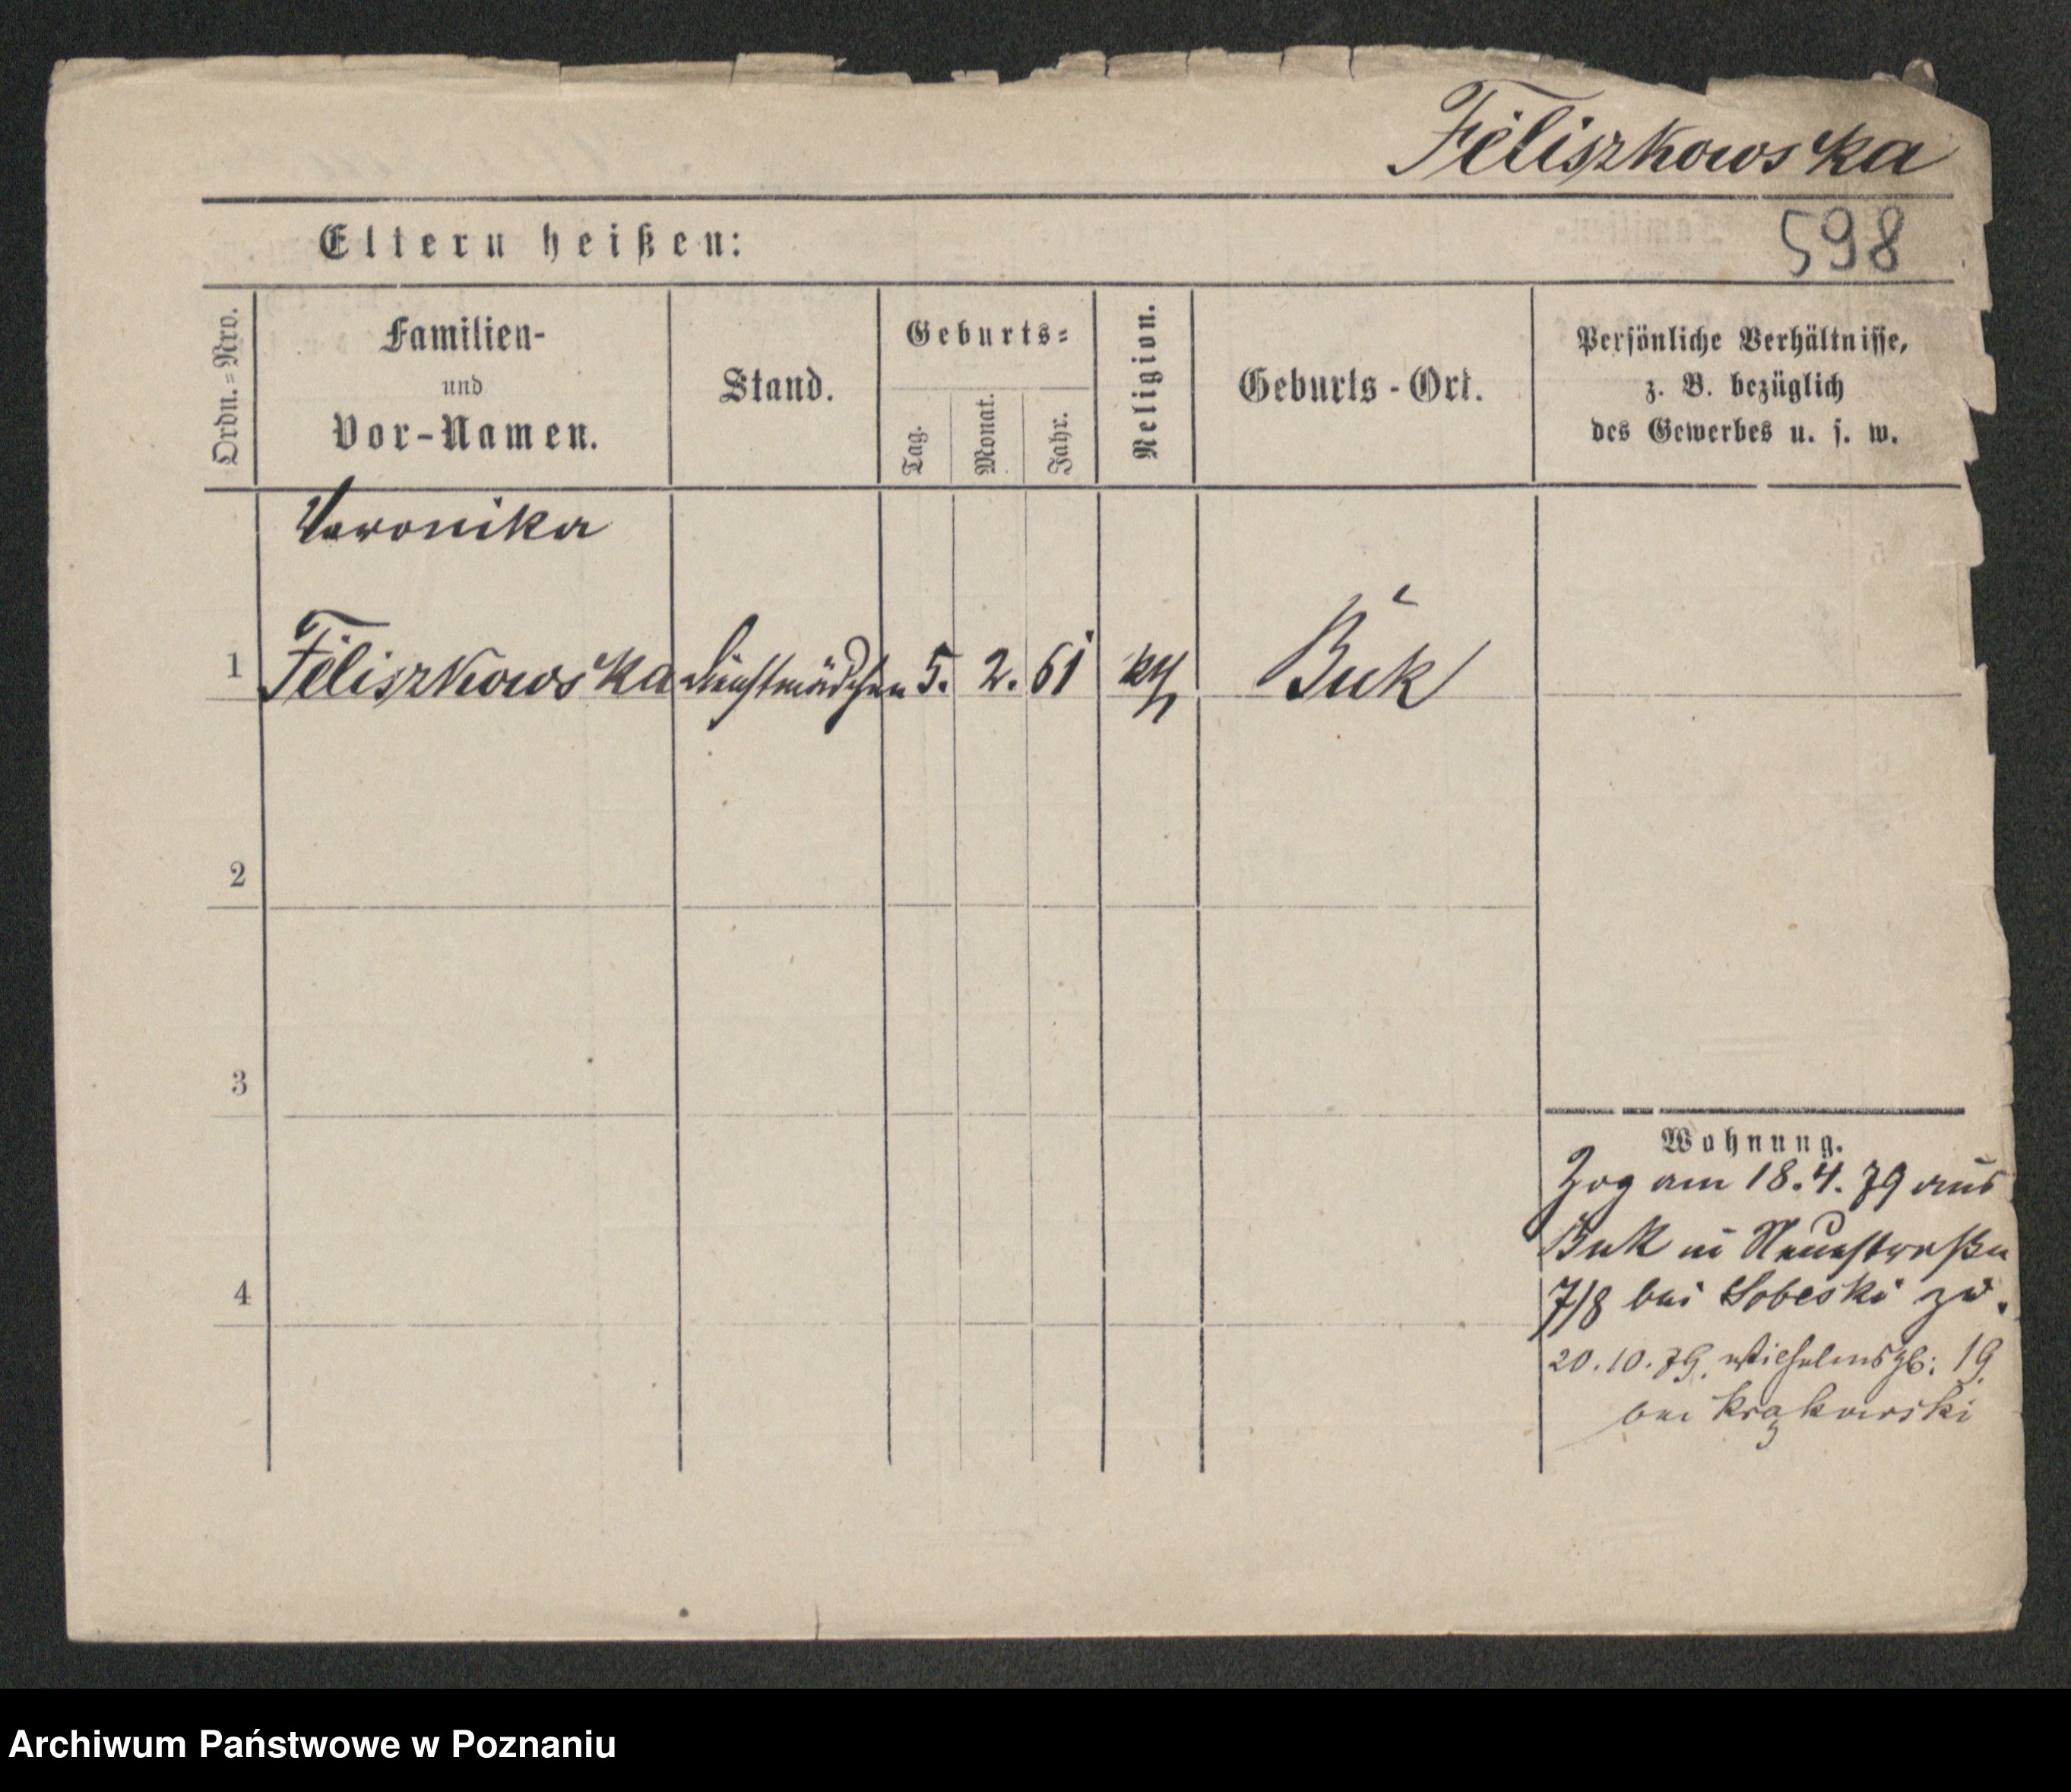 Feliszkowska
598
Eltern heißen:
Ordn.=Nro.
Familien-
und
Vor-Namen.
Stand.
Geburts=
Tag.
Monat.
Jahr.
Religion.
Geburts-Ort.
Persönliche Verhältnisse,
z. B. bezüglich
des Gewerbes u. s. w.
Veronika
1 Feliszkowska Dienstmädchen 5. 2. 61 kth Buk
2
3
4
Wohnung.
Zog am 18.4.79 aus
Buk in Neuestraße
7/8 bei Sobeski zu.
20.10.79. Wilhelms 19.
bei Krąkowski
Archiwum Państwowe w Poznaniu